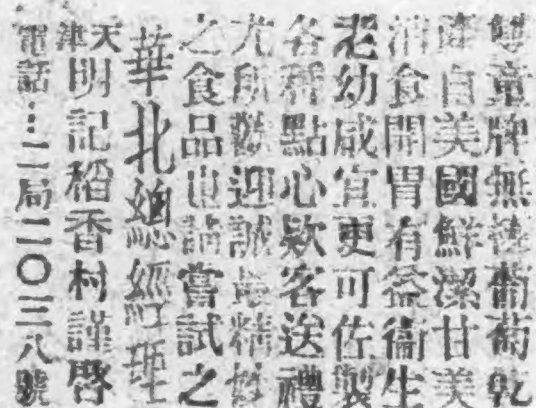 雙童牌無核葡萄乾
產自美國鮮潔甘美
消食開胃有益衞生
老幼咸宜更可佐製
各種點心欵客送禮
尤所歡迎誠最精妙
之食品也請嘗試之
華北總經理
天津明記稻香村謹啓
電話：二局二〇三八號